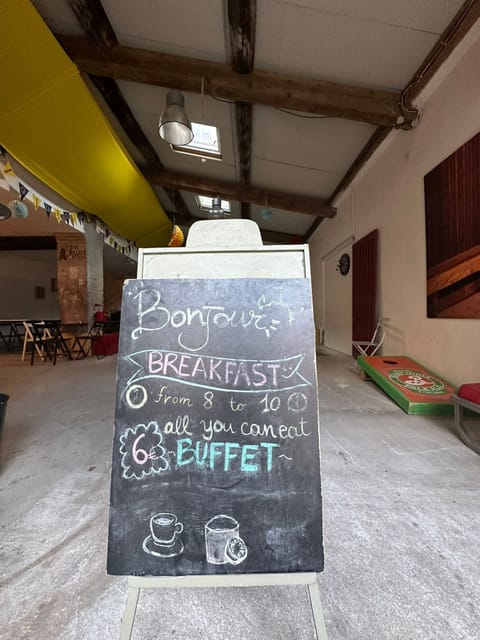 Bonjour
BREAKFAST
from 8 to 10
all you can eat
6€ ~BUFFET~